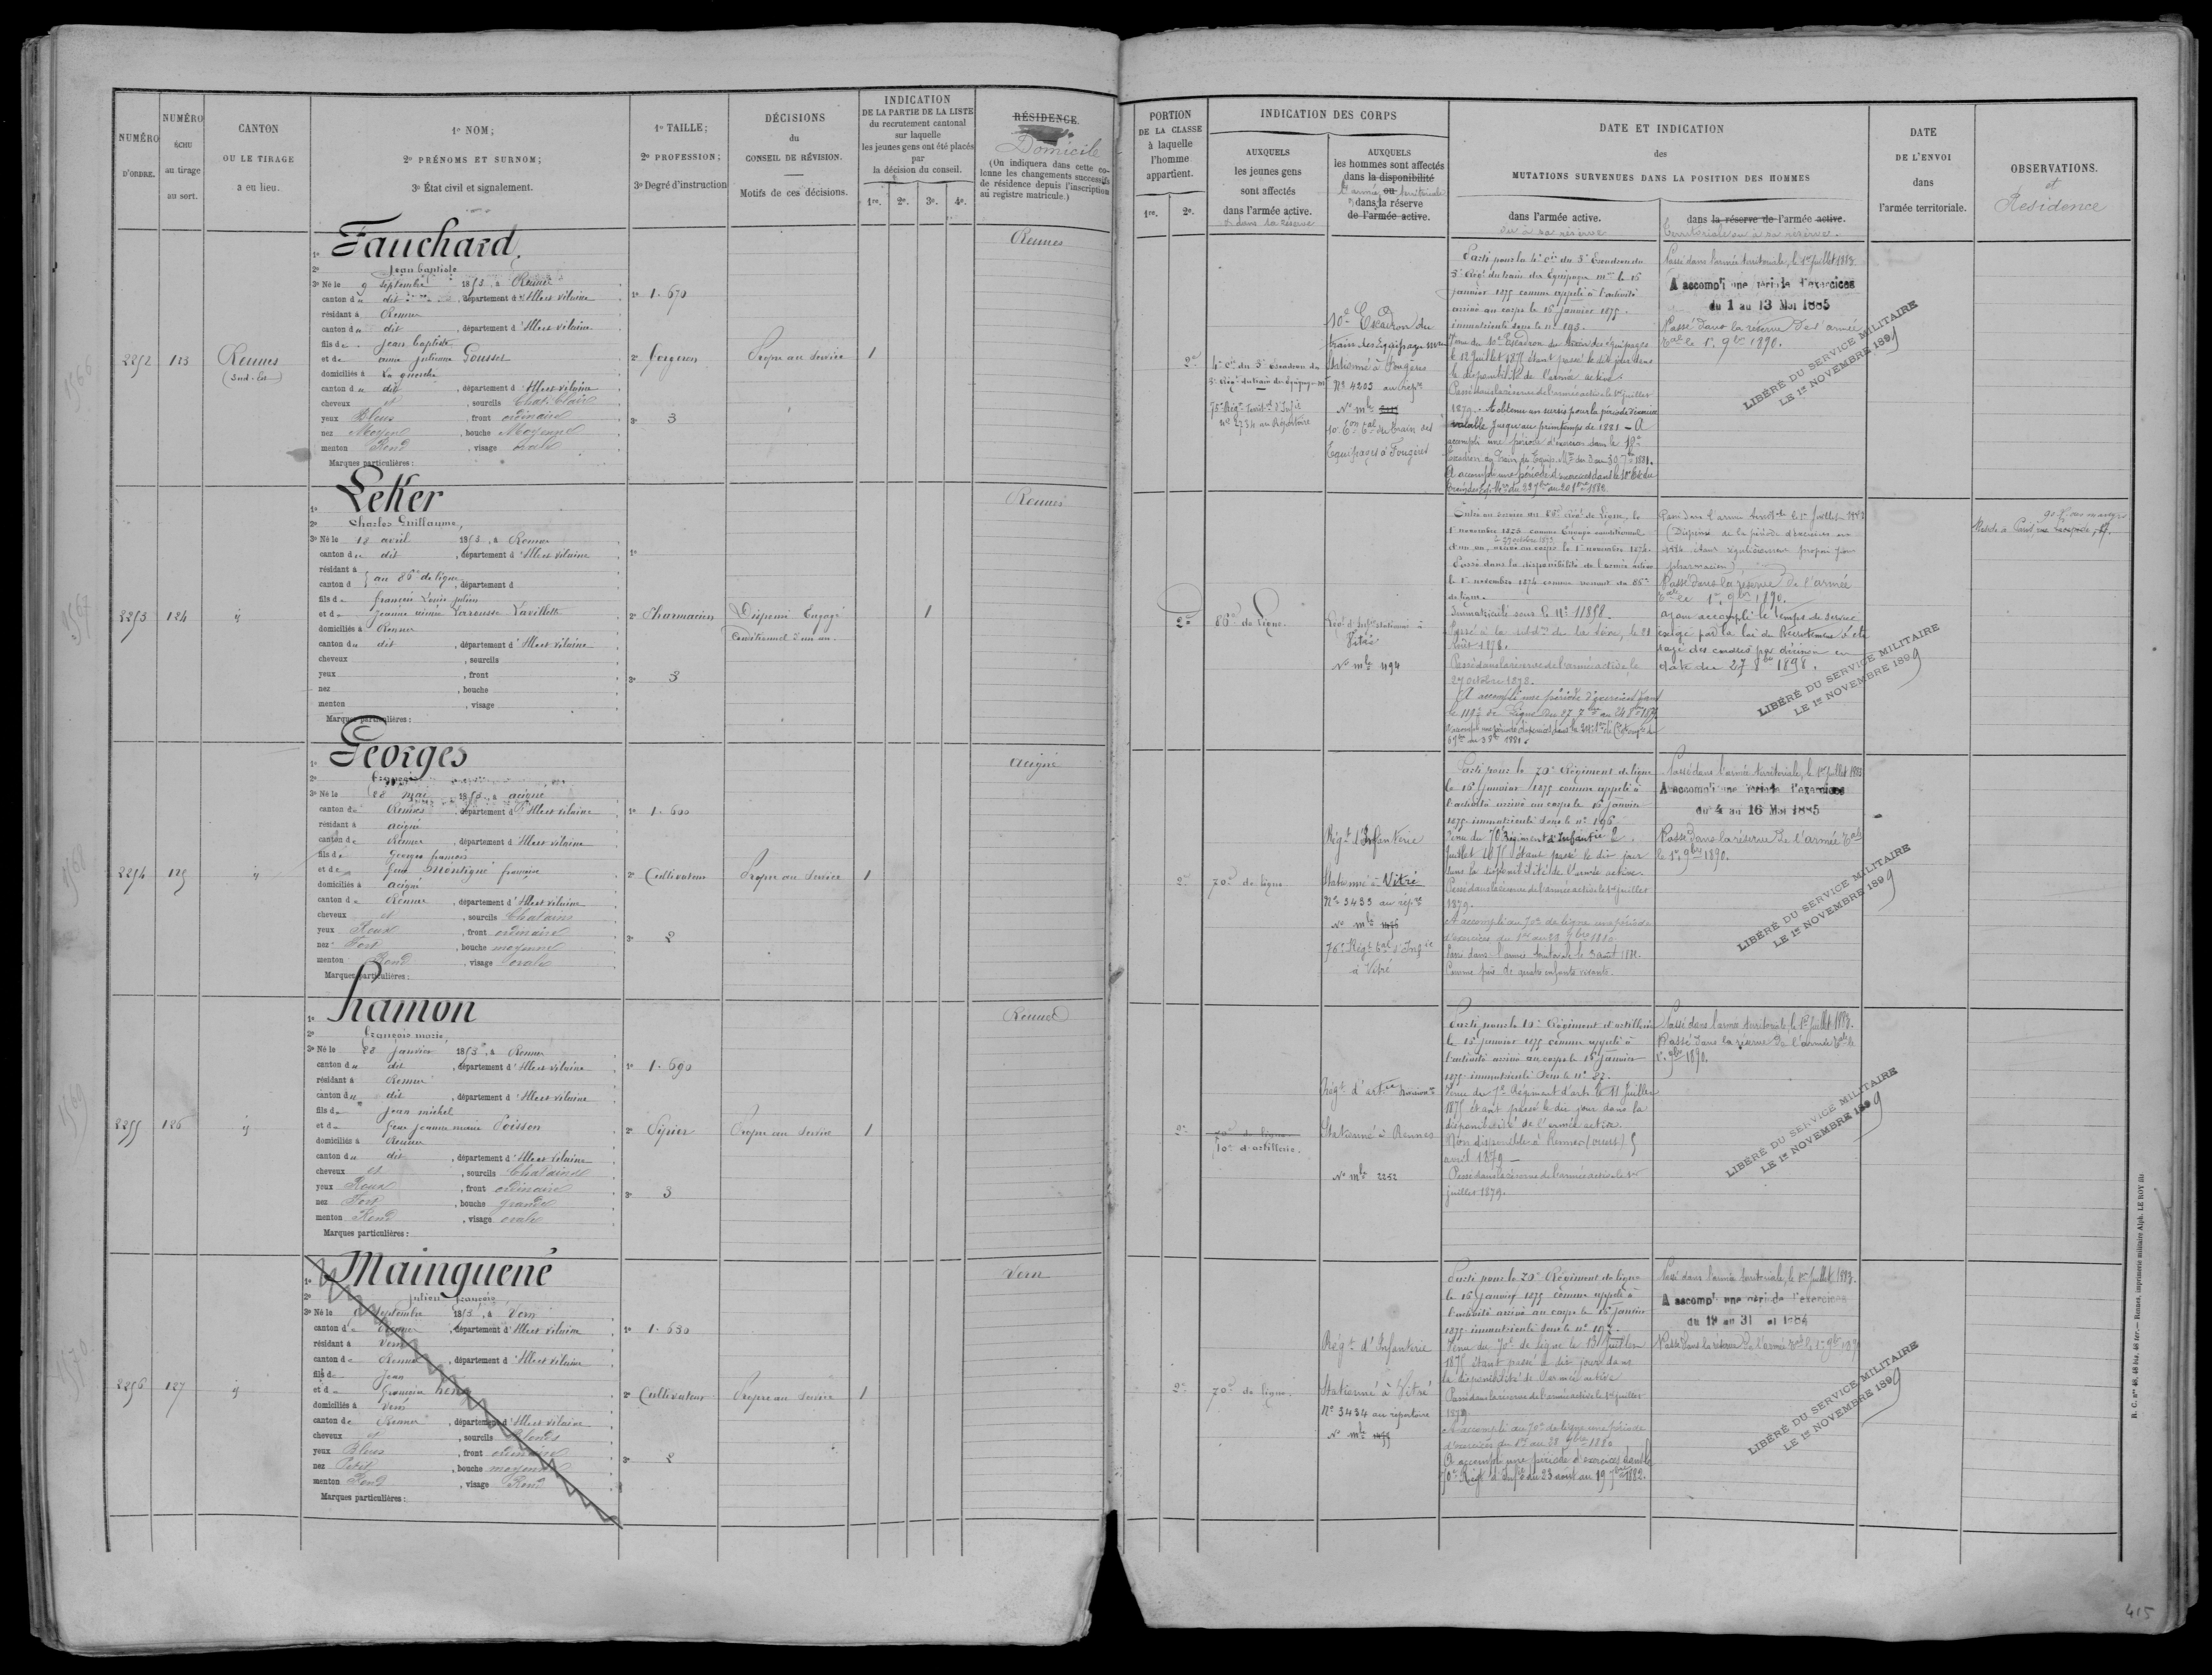 NUMÉRO
D'ORDRE.
NUMÉRO
ÉCHU
au tirage
au sort.
CANTON
OU LE TIRAGE
a eu lieu.
1º NOM;
2º PRÉNOMS ET SURNOM;
3º État civil et signalement.
1º TAILLE;
2º PROFESSION;
3º Degré d'instruction
DÉCISIONS
du
CONSEIL DE RÉVISION.
Motifs de ces décisions.
INDICATION
DE LA PARTIE DE LA LISTE
du recrutement cantonal
sur laquelle
les jeunes gens ont été placés
par
la décision du conseil.
1re. 2e. 3e. 4e.
RÉSIDENCE.
Domicile
(On indiquera dans cette co-
lonne les changements successifs
de résidence depuis l'inscription
au registre matricule.)
2252
123
Rennes
(Sud-Est)
1º Fauchard
2º Jean baptiste
3º Né le 9 septembre 1853, à Rennes
canton du dit, département d'Ille et vilaine
résidant à Rennes
canton du dit, département d'Ille et vilaine
fils de Jean baptiste
et de anne julienne Gousset
domiciliés à La guerche
canton du dit, département d'Ille et vilaine
cheveux et, sourcils Chat. Clair
yeux Bleus, front ordinaire
nez Moyen, bouche Moyenne
menton Rond, visage ovale
Marques particulières :
1º 1. 670
2º forgeron
3º 3
Propre au Service
1
Rennes
2253
124
1º LeKer
2º Charles Guillaume,
3º Né le 18 avril 1853, à Rennes
canton du dit, département d'Ille et vilaine
résidant à
canton d au 86e de ligne, département d
fils de françois Louis julien
et de jeanne aimée Larousse Lavillette
domiciliés à Rennes
canton du dit, département d'Ille et vilaine
cheveux, sourcils
yeux, front
nez, bouche
menton, visage
Marques particulières :
1º
2º Pharmacien
3º 3
Dispensé Engagé
Conditionnel d'un an
1
Rennes
2254
125
1º Georges
2º françois
3º Né le 28 mai 1853, à acigné
canton de Rennes, département d'Ille et vilaine
résidant à acigné
canton de Rennes, département d'Ille et vilaine
fils de Georges françois
et de feue Montigné françoise
domiciliés à acigné
canton de Rennes, département d'Ille et vilaine
cheveux et, sourcils Chatains
yeux Roux, front ordinaire
nez Fort, bouche moyenne
menton Rond, visage ovale
Marques particulières :
1º 1. 600
2º Cultivateur
3º 2
Propre au Service
1
acigné
2255
126
1º hamon
2º françois marie,
3º Né le 28 janvier 1853, à Rennes
canton du dit, département d'Ille et vilaine
résidant à Rennes
canton du dit, département d'Ille et vilaine
fils de jean michel
et de feue jeanne marie Poisson
domiciliés à Rennes
canton du dit, département d'Ille et vilaine
cheveux et, sourcils Chatains
yeux Roux, front ordinaire
nez Fort, bouche grande
menton Rond, visage ovale
Marques particulières :
1º 1. 690
3º 3
Propre au Service
1
Rennes
2256
127
1º Mainguené
2º julien françois
3º Né le septembre 1853, à Vern
canton de Rennes, département d'Ille et vilaine
résidant à Vern
canton de Rennes, département d'Ille et vilaine
fils de Jean
et de françoise heny
domiciliés à Vern
canton de Rennes, département d'Ille et vilaine
cheveux et, sourcils Blonds
yeux Bleus, front ordinaire
nez Petit, bouche moyenne
menton Rond, visage Rond
Marques particulières :
1º 1. 630
2º Cultivateur
3º 2
Propre au Service
1
Vern
PORTION
DE LA CLASSE
à laquelle
l'homme
appartient.
1re. 2e.
INDICATION DES CORPS
AUXQUELS
les jeunes gens
sont affectés
dans l'armée active.
et dans la réserve
AUXQUELS
les hommes sont affectés
dans la disponibilité
l'armée ou territoriale
dans la réserve
de l'armée active.
DATE ET INDICATION
des
MUTATIONS SURVENUES DANS LA POSITION DES HOMMES
dans l'armée active.
ou à sa réserve
dans la réserve de l'armée active.
territoriale ou à sa réserve.
DATE
DE L'ENVOI
dans
l'armée territoriale.
OBSERVATIONS.
et
Residence
2e
4e Cie du 5e Escadron du
75e Régt Territal d'Infie
nº 2734 au Répertoire
10e Escadron du
train des Equipages mres
Stationné à Fougères
Nº 4203 au Répre
Nº mle
10e Eon tal du train des
Equipages à Fougères
Parti pour la 4e Cie du 5e Escadron du
5e Régt du train des Equipages mres le 15
janvier 1875 comme appelé à l'activité
arrivé au corps le 15 janvier 1875.
immatriculé sous le nº 193.
Venu du 10e Escadron du train des Equipages
le 12 juillet 1875 étant passé le dit jour dans
la disponibilité de l'armée active.
Passé dans la réserve de l'armée active le 1er juillet
1879. A obtenu un sursis pour la période d'exercices
valable jusqu'au printemps de 1881. - A
accompli une période d'exercices dans le 10e
Escadron du Train des Equip. Mres du 3 au 30 7bre 1881.
Passé dans l'armée territoriale, le 1er juillet 1883
A accompli une période d'exercices
du 1 au 13 Mai 1885
Passé dans la réserve de l'armée
tale le 1er 9bre 1890.
LIBÉRÉ DU SERVICE MILITAIRE
LE 1er NOVEMBRE 1899
2e
86e de ligne.
Régt d'Infie stationné à
Vitré
Nº mle 494
Entré au service au 86e Régt de Ligne, le
1er novembre 1873 comme Engagé conditionnel
d'un an, arrivé au corps le 1er novembre 1873.
Passé dans la disponibilité de l'armée active
le 1er novembre 1874 comme venant du 86e
de ligne.
Immatriculé sous le Nº 11898.
Passé à la subdon de la Seine, le 21
Août 1878.
Passé dans la réserve de l'armée active le
27 octobre 1878.
A accompli une période d'exercices dans
le 119e de Ligne du 27 7bre au 24 8bre 1879
Passé dans l'armée territle le 1er Juillet 1883
(Dispensé de la période d'exercices en
1884 étant régulièrement proposé pour
pharmacien)
Passé dans la réserve de l'armée
tale le 1er 9bre 1890.
ayant accompli le temps de service
exigé par la loi de Recrutement a été
rayé des cadres par décision en
date du 27 8bre 1898.
LIBÉRÉ DU SERVICE MILITAIRE
LE 1er NOVEMBRE 1899
2e
70e de ligne
Régt d'Infanterie
Stationné à Vitré
Nº 3433 au répre
Nº mle
76e Régt tal d'Infie
à Vitré
Parti pour le 70e Régiment de ligne
le 15 janvier 1875 comme appelé à
l'activité arrivé au corps le 15 janvier
1875 immatriculé sous le nº 196
Venu du 70e Régiment d'Infantie 2
Juillet 1875 étant passé le dit jour
dans la disponibilité de l'armée active.
Passé dans la réserve de l'armée active le 1er juillet
1879.
A accompli au 70e de ligne une période
d'exercices du 1er au 28 1880
Passé dans l'armée territoriale le 3 août 1881.
Comme père de quatre enfants vivants.
Passé dans l'armée territoriale, le 1er juillet 1883
A accompli une période d'exercices
du 4 au 16 Mai 1885
Passé dans la réserve de l'armée tale
le 1er 9bre 1890.
LIBÉRÉ DU SERVICE MILITAIRE
LE 1er NOVEMBRE 1899
2e
70e de ligne
10e d'artillerie.
Régt d'artie
Stationné à Rennes
Nº mle 2252
Parti pour le 10e Régiment d'artillerie
le 15 janvier 1875 comme appelé à
l'activité arrivé au corps le 15 janvier
1875 immatriculé sous le nº 82.
Venu du 7e Régiment d'arte le 11 Juillet
1875 étant passé le dit jour dans la
disponibilité de l'armée active.
Non disponible à Rennes
avril 1879 —
Passé dans la réserve de l'armée active le 1er
juillet 1879.
Passé dans l'armée territoriale, le 1er juillet 1883.
Passé dans la réserve de l'armée tale le
1er 9bre 1890.
LIBÉRÉ DU SERVICE MILITAIRE
LE 1er NOVEMBRE 1899
2e
70e de ligne.
Régt d'Infanterie
Stationné à Vitré
Nº 3434 au répertoire
Nº mle
Parti pour le 70e Régiment de ligne
le 15 janvier 1875 comme appelé à
l'activité arrivé au corps le 15 janvier
1875 immatriculé sous le nº
Venu du 70e de ligne le Juillet
1875 étant passé le dit jour dans
la disponibilité de l'armée active
Passé dans la réserve de l'armée active le 1er juillet
1879
A accompli au 70e de ligne une période
d'exercices du 1er au 28 1880
A accompli une période d'exercices dans le
70e Régt d'Infie du 23 août au 19 7bre 1882.
Passé dans l'armée territoriale, le 1er juillet 1883.
A accompli une période d'exercices
du 19 au 31 1884
Passé dans la réserve de l'armée tale le 1er 9bre
LIBÉRÉ DU SERVICE MILITAIRE
LE 1er NOVEMBRE 1899
R. C. Nos 48, 48 bis, 48 ter. — Rennes, imprimerie militaire Alph. LE ROY fils
415